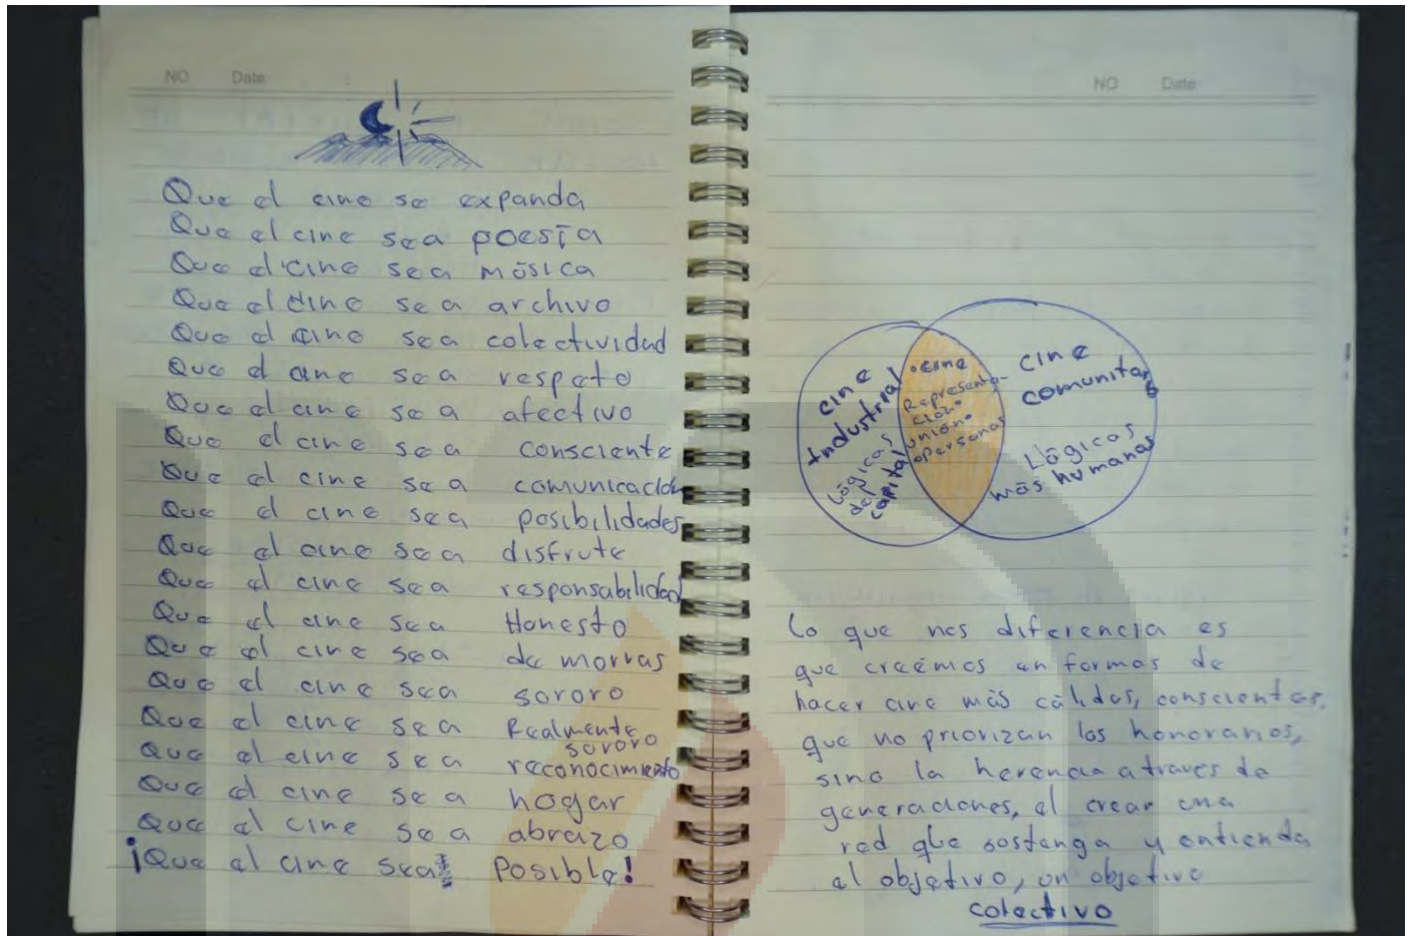 NO Date
Que el cine se expanda
Que el cine sea poesía
Que el cine sea música
Que el cine sea archivo
Que el cine sea colectividad
Que el cine sea respeto
Que el cine sea afectivo
Que el cine sea consciente
Que el cine sea comunicación
Que el cine sea posibilidades
Que el cine sea disfrute
Que el cine sea responsabilidad
Que el cine sea Honesto
Que el cine sea de morras
Que el cine sea sororo
Que el cine sea Realmente sororo
Que el cine sea reconocimiento
Que el cine sea hogar
Que el cine sea abrazo
¡Que el cine sea Posible!
NO Date
cine
Industrial
Lógicas
del
capital
•cine
Representa-
ción•
unión•
•personas
cine
comunitario
Lógicas
más humanas
Lo que nos diferencia es
que creémos en formas de
hacer cine más cálidas, conscientes,
que no priorizan los honorarios,
sino la herencia a traves de
generaciones, el crear una
red que sostenga y entienda
al objetivo, un objetivo
colectivo